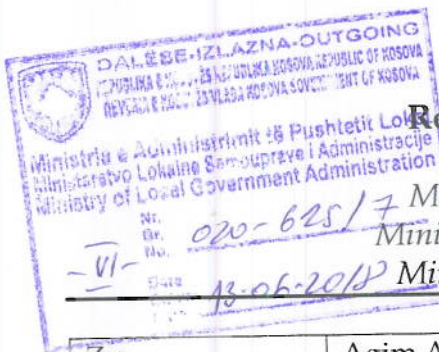 DALËSE-IZLAZNA-OUTGOING
REPUBLIKA KOSOVA REPUBLIC OF KOSOVA
VLADA KOSOVA GOVERNMENT OF KOSOVA
Ministria e Administrimit të Pushtetit Lokal
Ministarstvo Lokalne Samouprave i Administracije
Ministry of Local Government Administration
Re
Nr.
Br.
No.
020-625/7
M
Mini
-VI-
Date
13-06-2018
Mi
Agim A